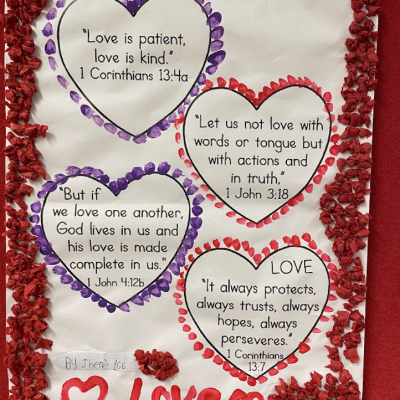 "Love is patient,
love is kind."
1 Corinthians 13:4a
"Let us not love with
words or tongue but
with actions and
in truth,"
1 John 3:18
"But if
we love one another,
God lives in us and
his love is made
complete in us."
1 John 4:12b
LOVE
"It always protects,
always trusts, always
hopes, always
perseveres."
1 Corinthians
13:7
By